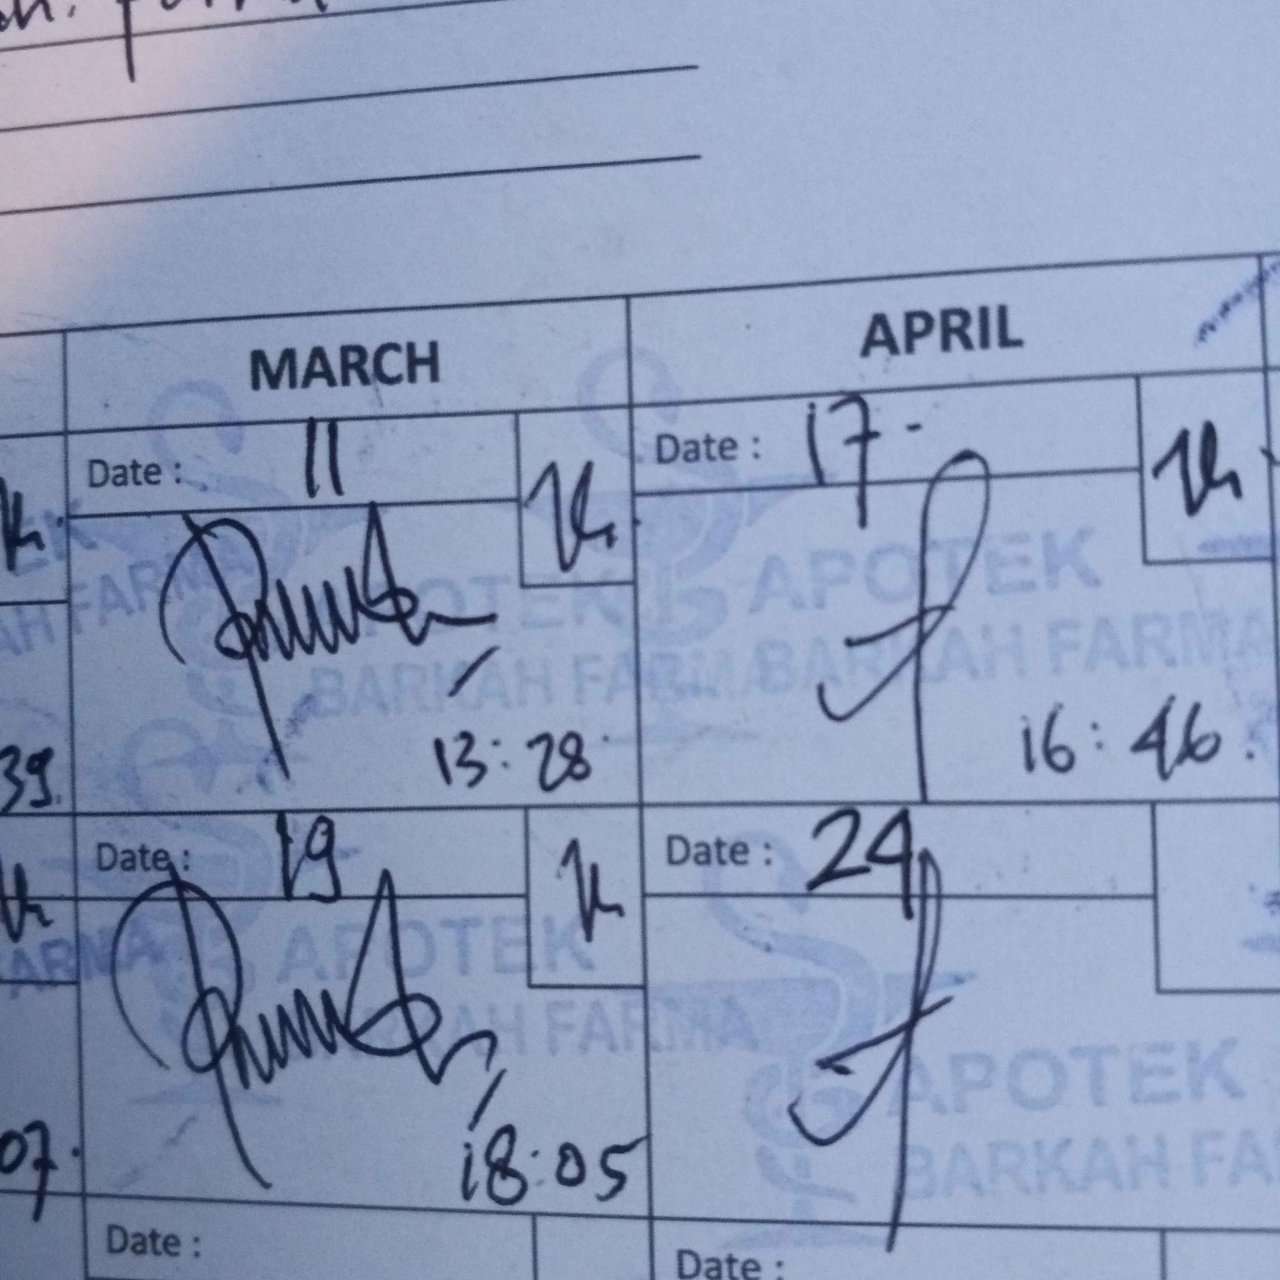 MARCH APRIL
Date : 11 Date : 17 -
APOTEK APOTEK
BARKAH FARMA BARKAH FARMA
39. 13:28 16:46.
Date : 19 Date : 24
FARMA APOTEK
AH FARMA
APOTEK
07. 18:05 BARKAH FA
Date : Date :